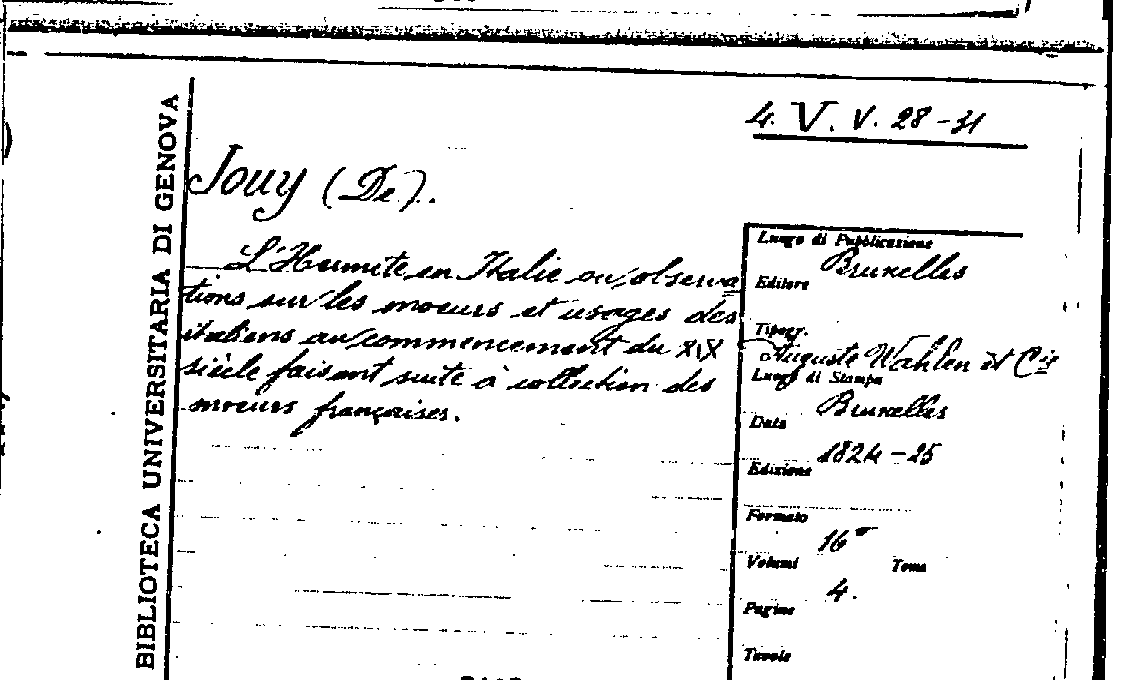 BIBLIOTECA UNIVERSITARIA DI GENOVA
4. V. V. 28-31
Jouy (De).
L'Hermite en Italie ou observa
tions sur les moeurs et usages des
italiens au commencement du XIX
siècle faisant suite à collection des
moeurs françaises.
Luogo di Pubblicazione
Bruxelles
Editore
Tipogr.
Auguste Wahlen et Cie
Luogo di Stampa
Bruxelles
Data
1824-25
Edizione
Formato
16°
Volumi Tomo
4.
Pagine
Tavole